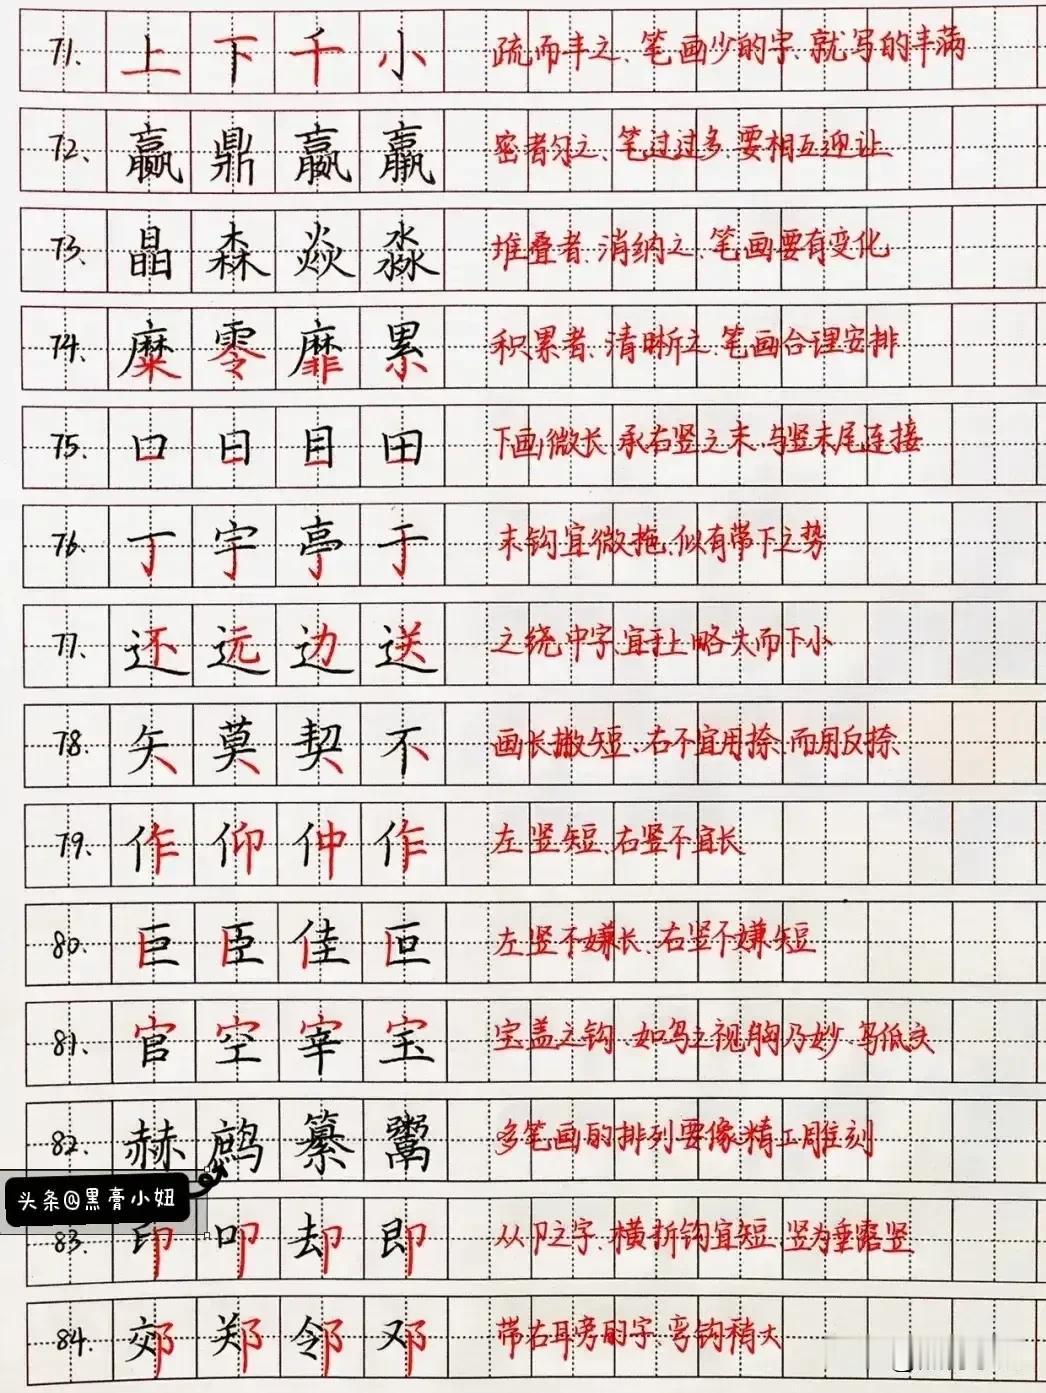 71. 上 下 千 小 疏而丰之、笔画少的字、就写的丰满
72、 赢 鼎 嬴 羸 密者匀之、笔过过多、要相互迎让
73、 晶 森 焱 淼 堆叠者、消纳之、笔画要有变化
74、 糜 零 靡 累 积累者、清晰之、笔画合理安排
75、 口 日 目 田 下画微长、承右竖之末、与竖末尾连接
76、 丁 宇 亭 于 末钩宜微拖、似有带下之势
77、 还 远 边 送 之绕中字、宜于上略大而下小
78、 矢 莫 契 不 画长撇短、右不宜用捺、而用反捺、
79、 作 仰 仲 作 左竖短、右竖不宜长
80、 巨 臣 佳 叵 左竖不嫌长、右竖不嫌短
81、 官 空 宰 宝 宝盖之钩、如鸟之视胸乃妙、鸟低头
82、 赫 鹧 纂 鬻 多笔画的排列要像精工雕刻
头条@黑膏小妞
83、 印 叩 却 即 从卩之字、横折钩宜短、竖为垂露竖
84、 郊 郑 邻 邓 带右耳旁的字、弯钩稍大